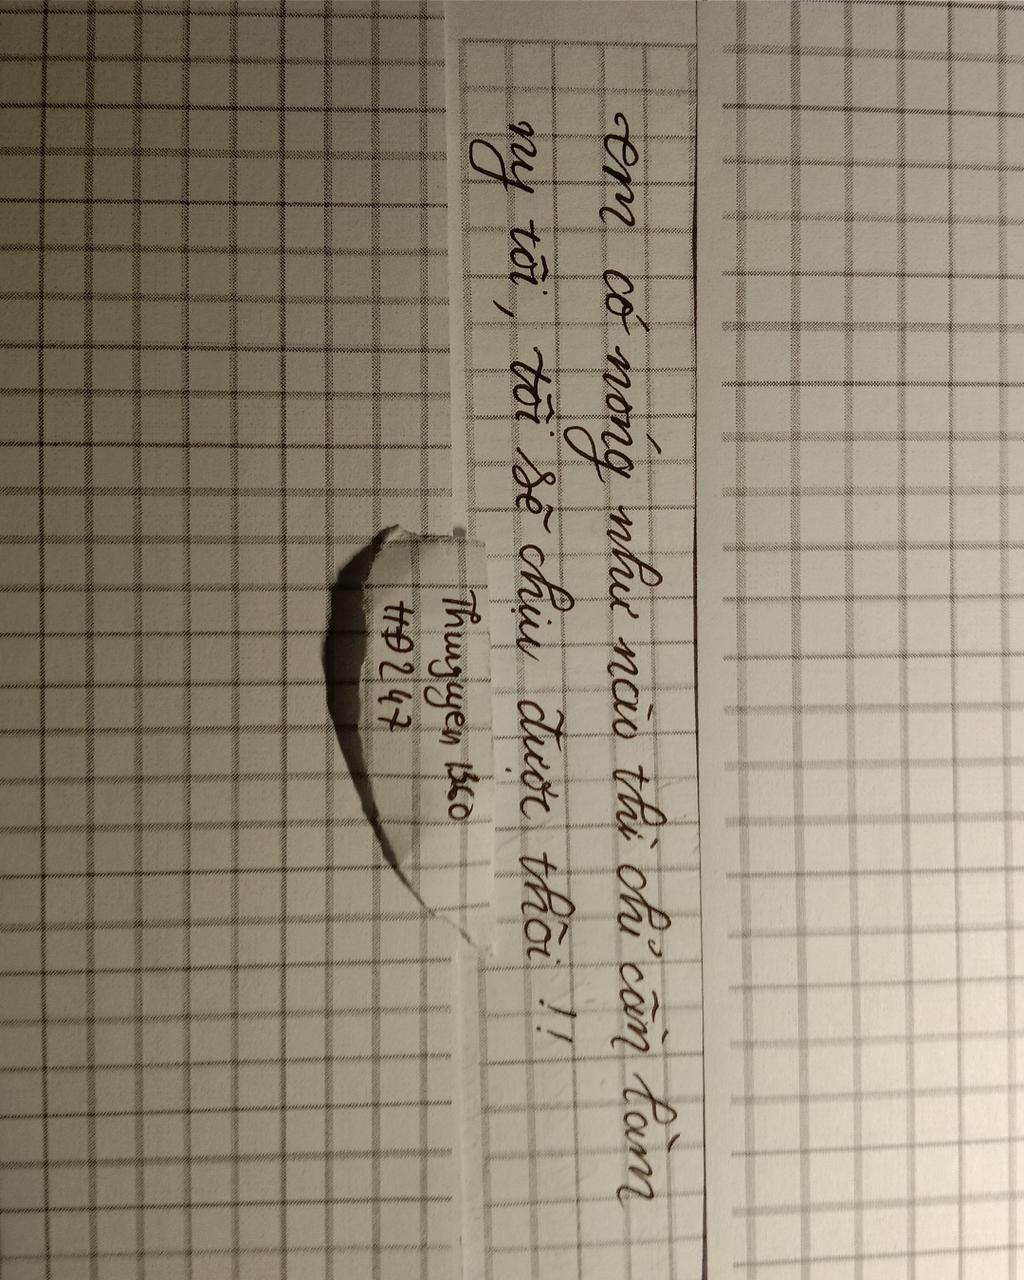 em có nóng như nào thì chỉ cần làm
ny tôi, tôi sẽ chịu được thôi !!
Thuuyen 1360
HĐ247